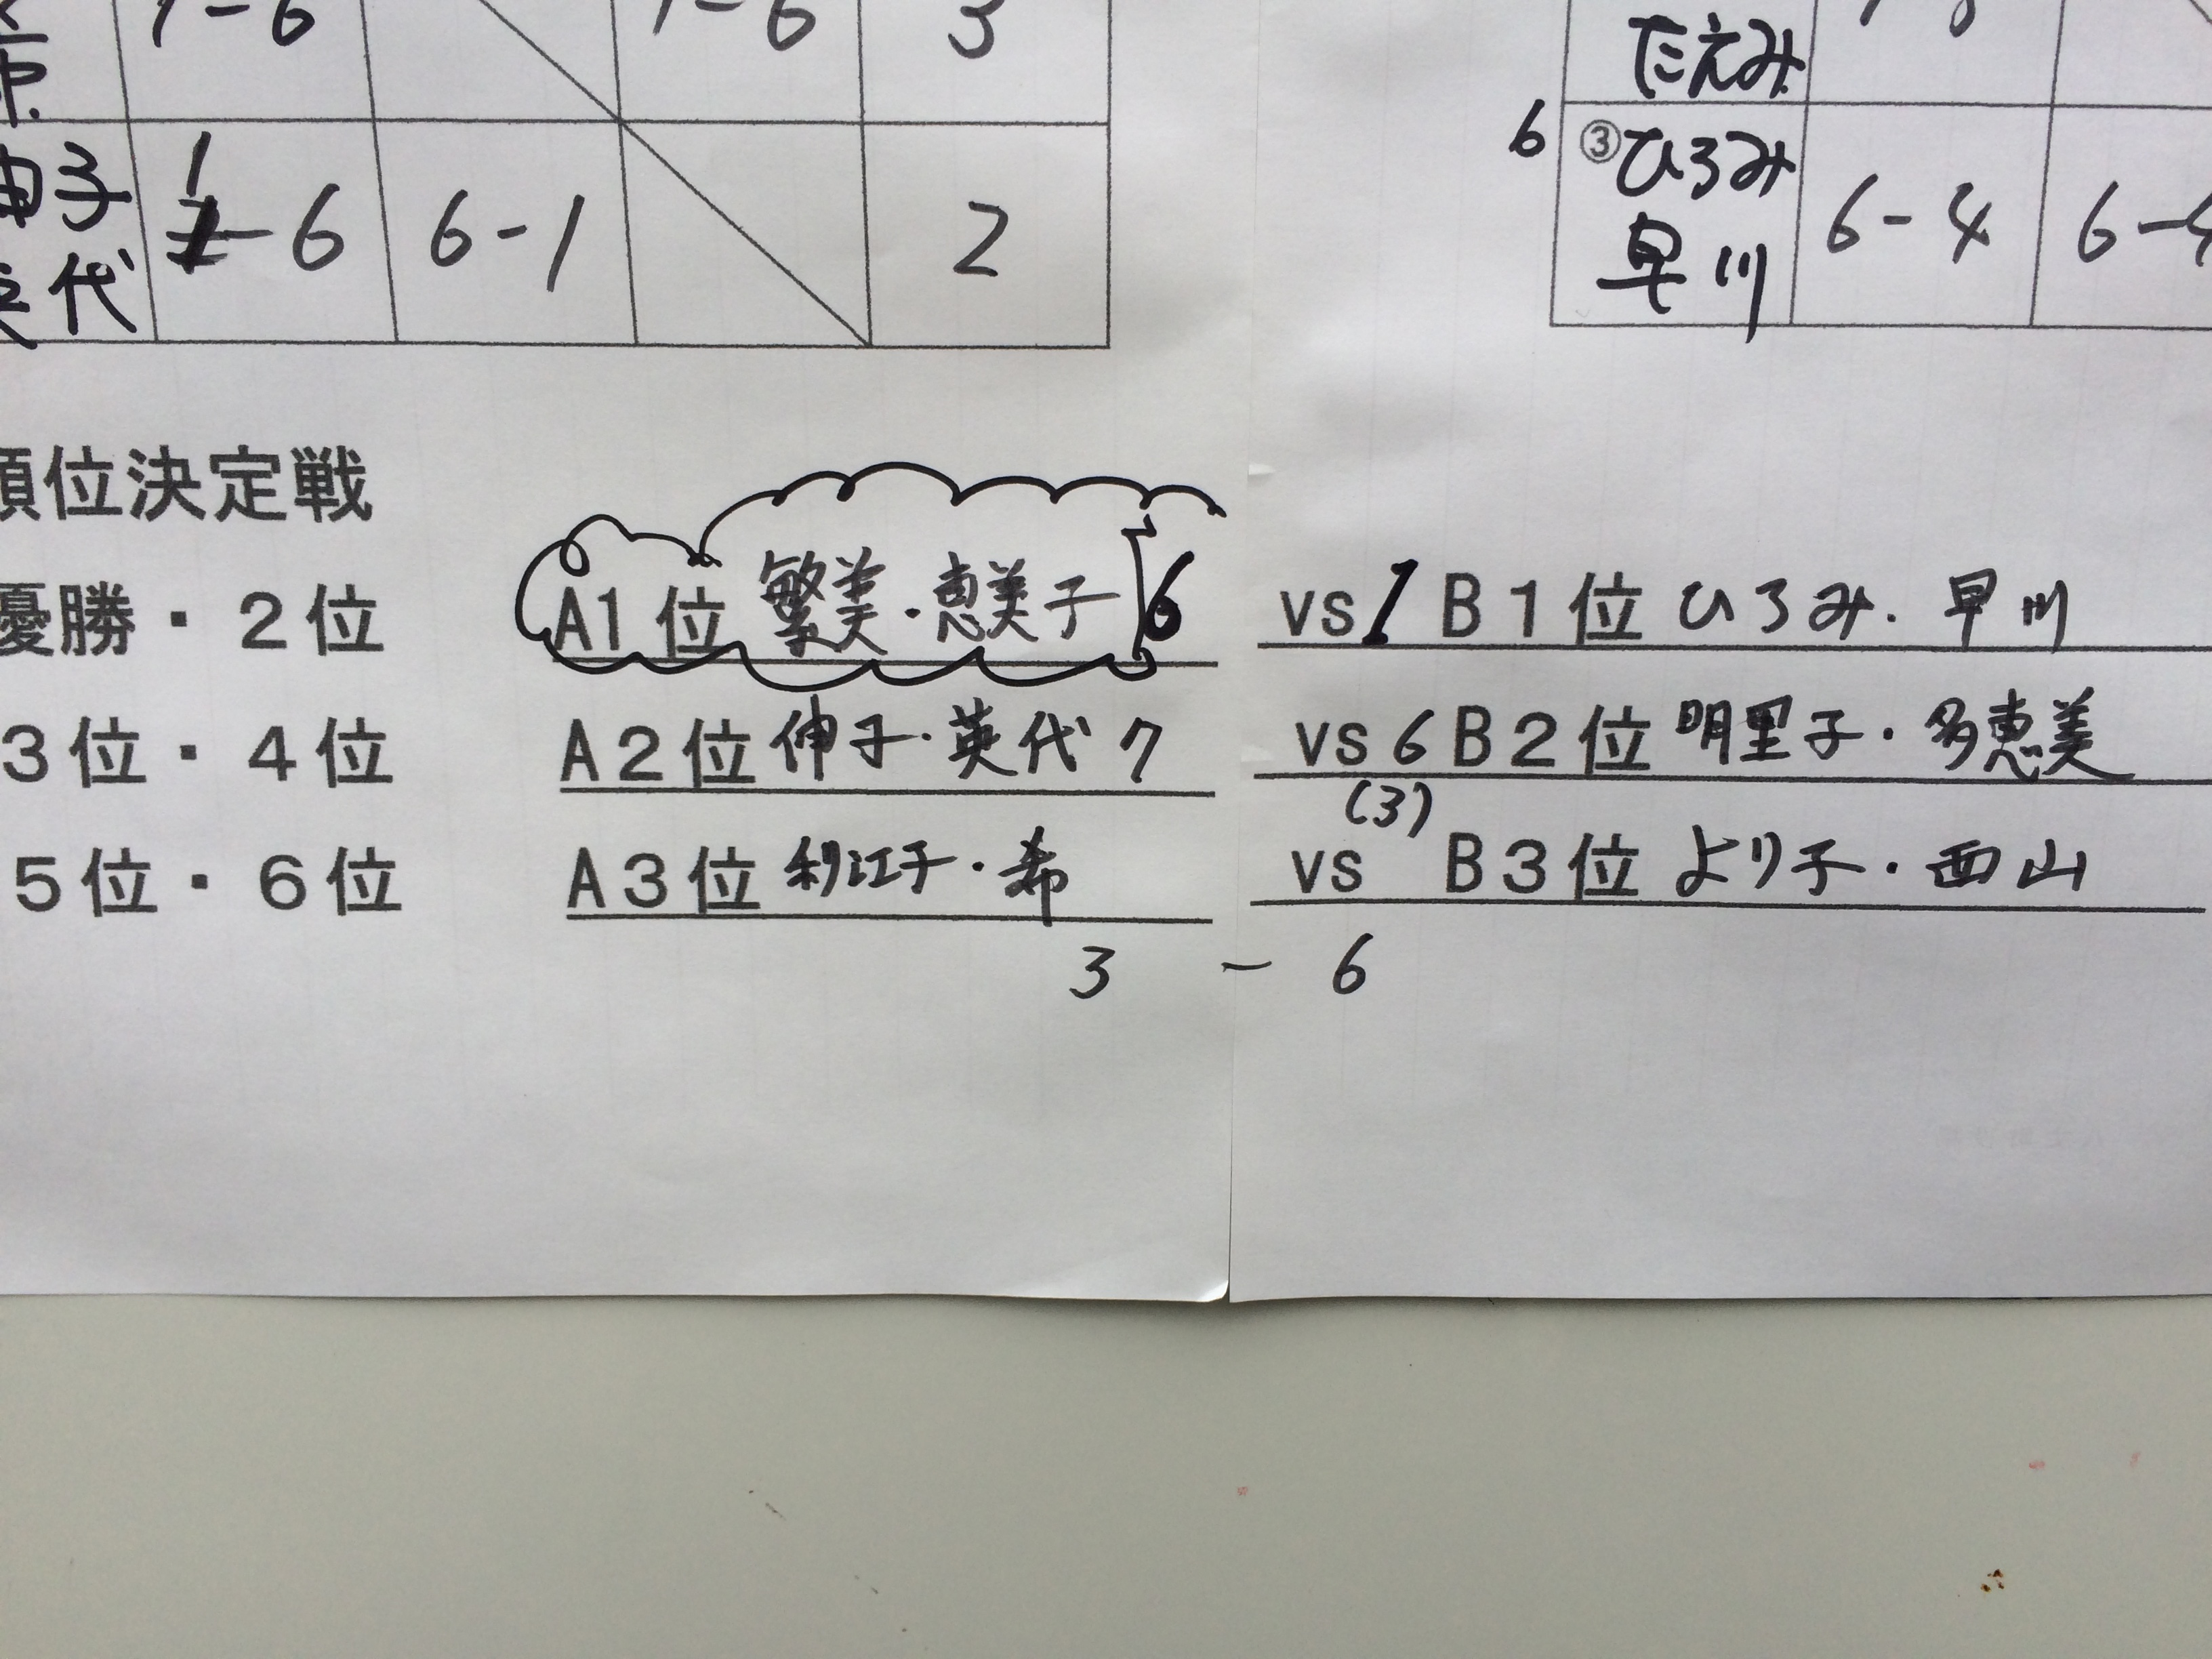 1-6 1-6 3
たえみ
6 ③ひろみ
由子 1-6 6-1 2
早川 6-4 6-4
代
順位決定戦
優勝・2位 A1位 繁美・恵美子 6 vs 1 B1位 ひろみ・早川
3位・4位 A2位 伸子・英代 7 vs 6 B2位 明里子・多恵美
(3)
5位・6位 A3位 利江子・希 vs B3位 より子・西山
3 - 6